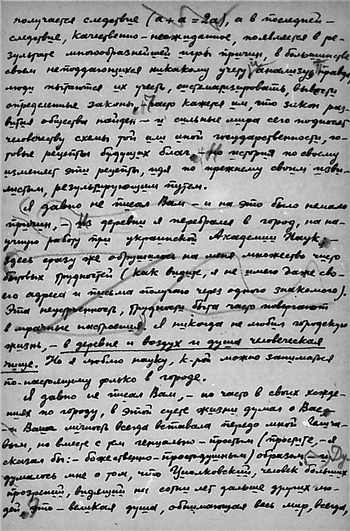 получается следствие (a + a = 2a), а в последней –
следствие, качественно-неожиданное, появляется в ре-
зультате многообразнейшей игры причин, в большинстве
своем неподдающихся никакому учету и анализу. Правда,
люди пытаются их учесть, систематизировать, вывести
определенные законы, часто кажется им, что закон раз-
вития общества найден – и сильные мира сего подносят
человечеству схемы той или иной государственности, го-
товые рецепты будущих благ. Но история по-своему
изменяет эти рецепты, идя по прежнему своим изви-
листым, результирующим путем.
Я давно не писал Вам – и на это было немало
причин. – Из деревни я перебрался в город, на на-
учную работу при украинской Академии Наук, –
здесь сразу же обрушилось на меня множество чисто
бытовых трудностей (как видите, я не имею даже сво-
его адреса и письма получаю через одного знакомого).
Эта неустроенность, трудности быта часто повергают
в мрачные настроения. Я никогда не любил городскую
жизнь, – в деревне и воздух и душа человеческая
чище. Но я люблю науку, к-рой можно заниматься
по-настоящему только в городе.
Я давно не писал Вам, – но часто в своих хожде-
ниях по городу, в этой суете жизни думал о Вас
– Ваша личность всегда вставала передо мной величa-
вым, но вместе с тем гениально-простым (простите, – я
сказал бы: – божественно-простодушным) образом, и
думалось мне о том, что Циолковский, человек больших
прозрений, видящий на сотни лет дальше других лю-
дей, это – великая душа, обнимающая весь мир, всегда,